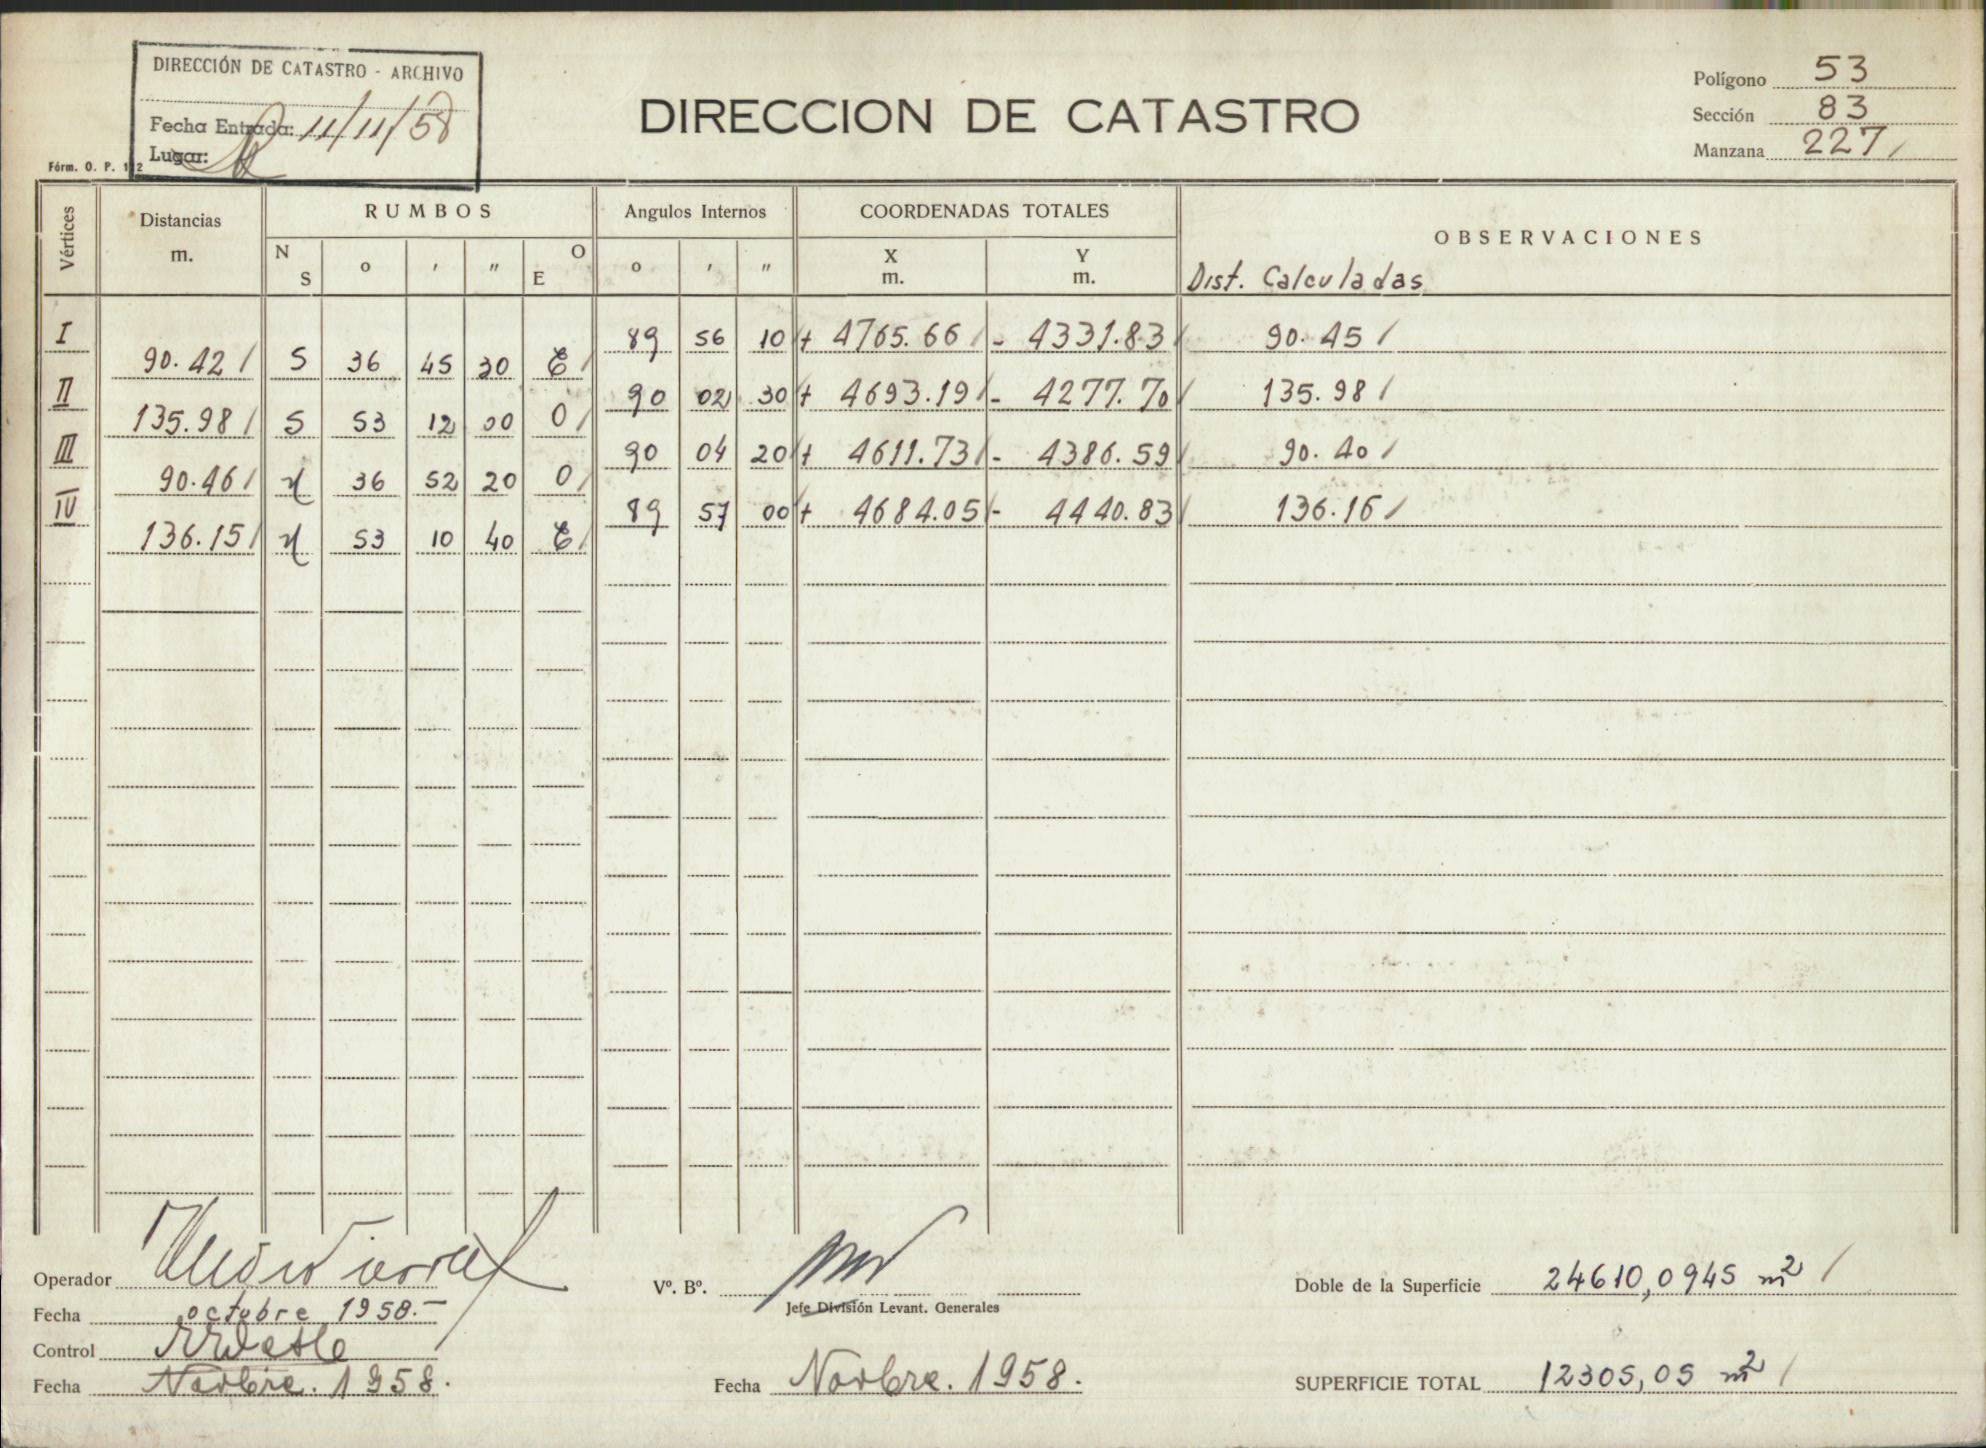 DIRECCIÓN DE CATASTRO - ARCHIVO
Fecha Entrada: 11/11/58
Lugar:
Fórm. O. P. 112
DIRECCION DE CATASTRO
Polígono 53
Sección 83
Manzana 227
Vértices Distancias m. RUMBOS Angulos Internos COORDENADAS TOTALES OBSERVACIONES
N S o ' " E O o ' " X m. Y m. Dist. Calculadas
I 89 56 10 + 4765.66 - 4331.83 90.45
90.42 S 36 45 30 E
II 90 02 30 + 4693.19 - 4277.70 135.98
135.98 S 53 12 00 O
III 90 04 20 + 4611.73 - 4386.59 90.40
90.46 N 36 52 20 O
IV 89 57 00 + 4684.05 - 4440.83 136.16
136.15 N 53 10 40 E
Operador
Fecha octubre 1958.-
Control
Fecha Novbre. 1958.
Vº. Bº.
Jefe División Levant. Generales
Fecha Novbre. 1958.
Doble de la Superficie 24610,0945 m2
SUPERFICIE TOTAL 12305,05 m2